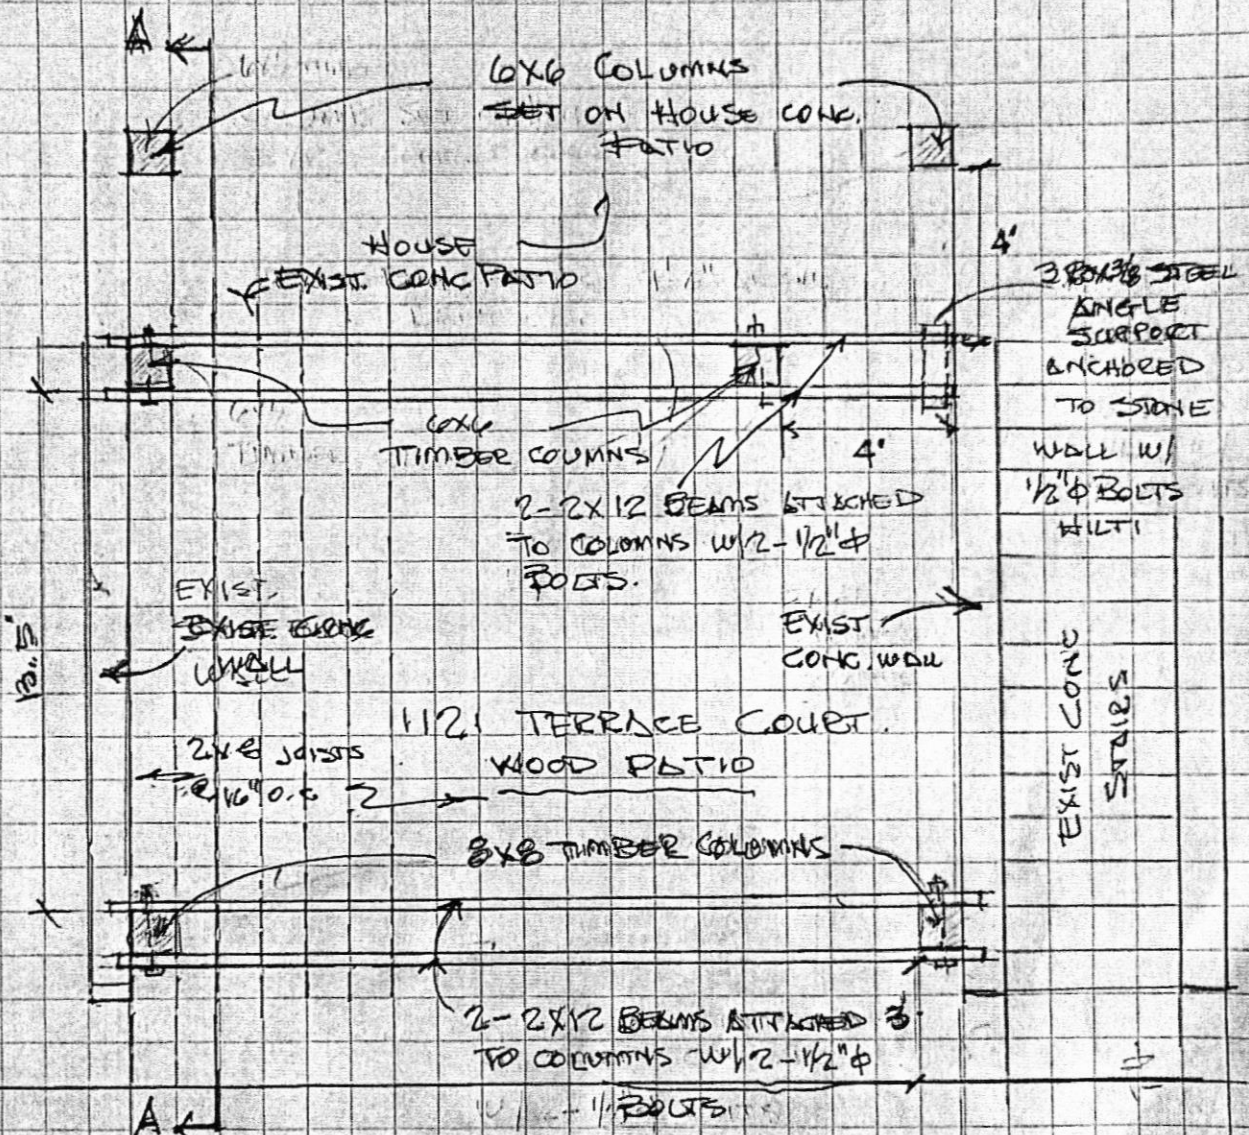 A
6X6 COLUMNS
SET ON HOUSE CONC.
PATIO
HOUSE
EXIST. CONC PATIO
4'
STEEL
ANGLE
SUPPORT
ANCHORED
TO STONE
WALL W/
1/2"φ BOLTS
HILTI
6X6
TIMBER COUMNS
4'
2-2X12 BEAMS ATTACHED
TO COLUMNS W/2-1/2"φ
BOLTS.
EXIST.
WALL
EXIST.
CONC. WALL
EXIST CONC
STAIRS
1121 TERRACE COURT.
WOOD PATIO
2X8 JOISTS
@ 16" O.C
8X8 TIMBER COLUMNS
2-2X12 BEAMS ATTACHED
3'
TO COLUMNS W/2-1/2"φ
BOLTS
A